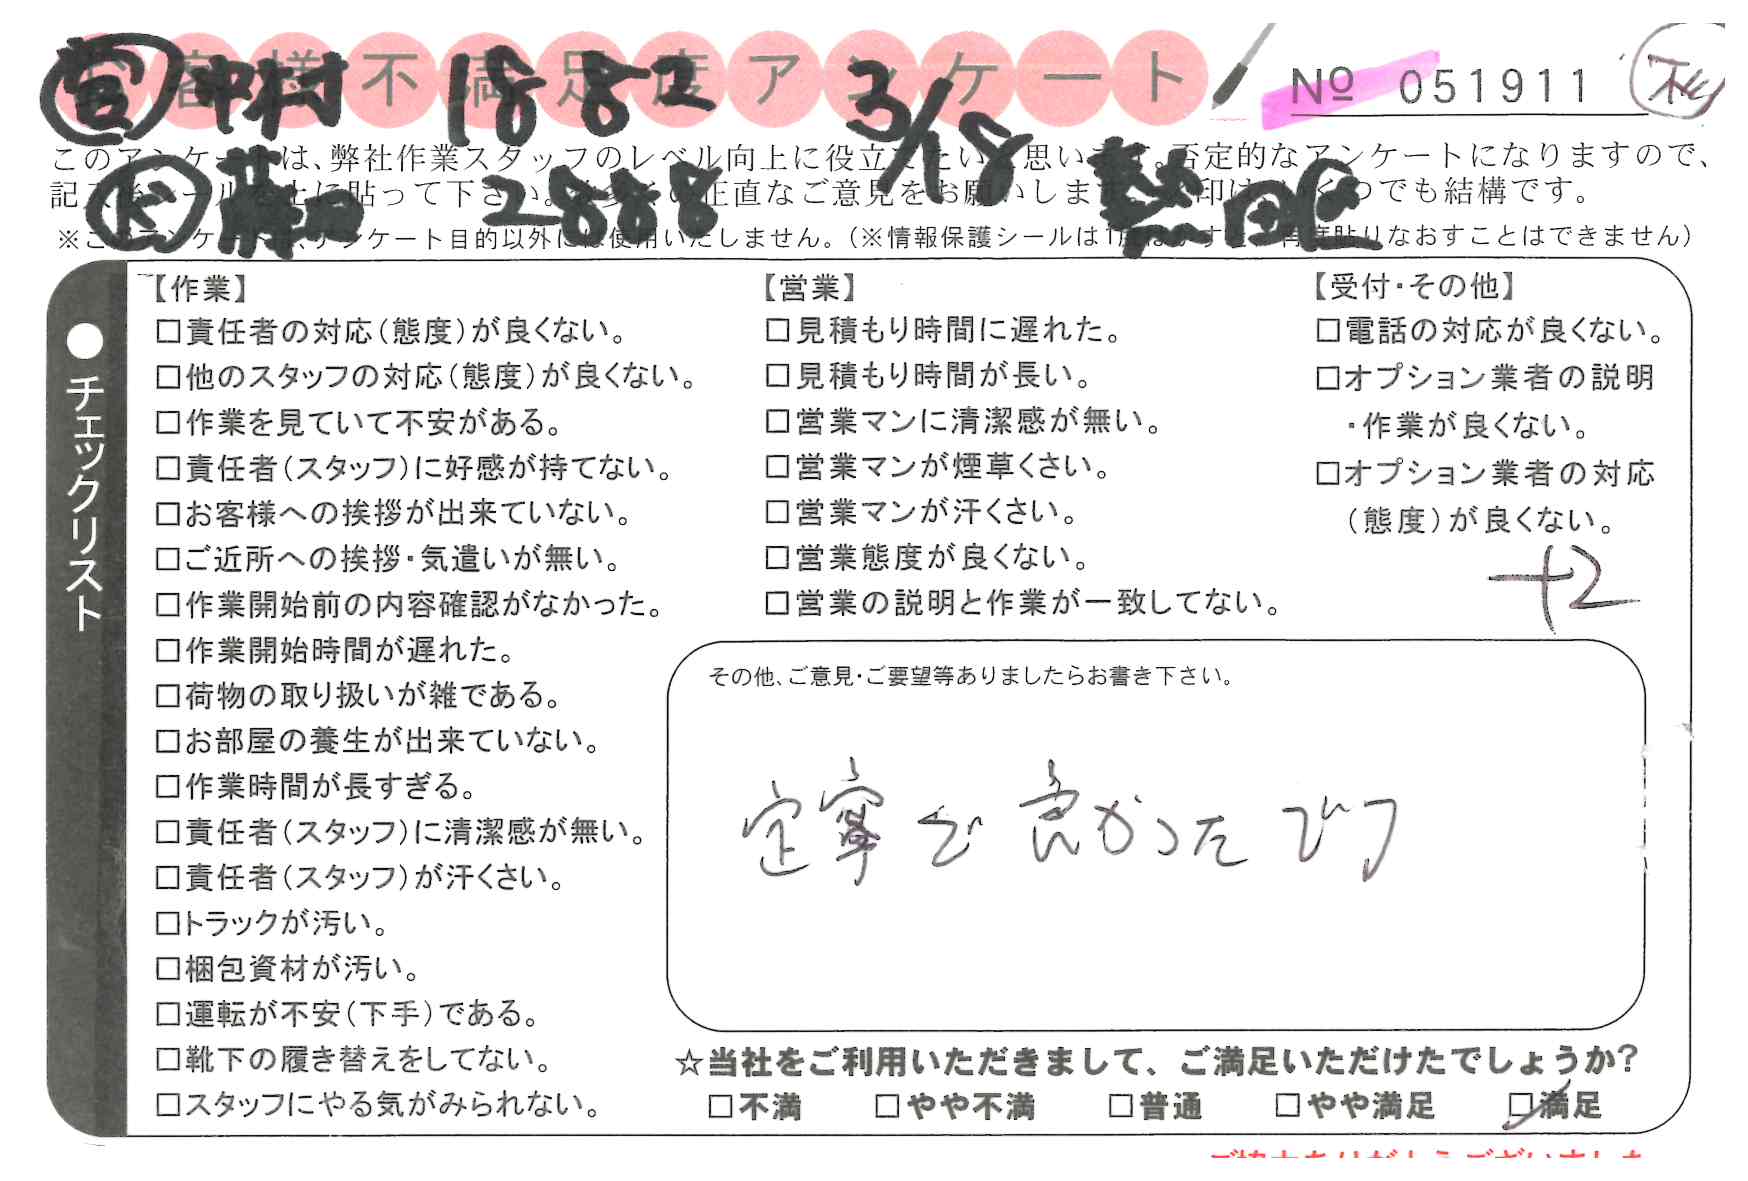 お客様不満足度アンケート
№ 051911
営 中村 1882 3/18
このアンケートは、弊社作業スタッフのレベル向上に役立てたいと思います。否定的なアンケートになりますので、
記入後シールを上に貼って下さい。 正直なご意見をお願いします。 印は、いくつでも結構です。
2888
※このアンケートは、アンケート目的以外には使用いたしません。(※情報保護シールは1度はがすと、再度貼りなおすことはできません)
●チェックリスト
【作業】
□責任者の対応(態度)が良くない。
□他のスタッフの対応(態度)が良くない。
□作業を見ていて不安がある。
□責任者(スタッフ)に好感が持てない。
□お客様への挨拶が出来ていない。
□ご近所への挨拶・気遣いが無い。
□作業開始前の内容確認がなかった。
□作業開始時間が遅れた。
□荷物の取り扱いが雑である。
□お部屋の養生が出来ていない。
□作業時間が長すぎる。
□責任者(スタッフ)に清潔感が無い。
□責任者(スタッフ)が汗くさい。
□トラックが汚い。
□梱包資材が汚い。
□運転が不安(下手)である。
□靴下の履き替えをしてない。
□スタッフにやる気がみられない。
【営業】
□見積もり時間に遅れた。
□見積もり時間が長い。
□営業マンに清潔感が無い。
□営業マンが煙草くさい。
□営業マンが汗くさい。
□営業態度が良くない。
□営業の説明と作業が一致してない。
【受付・その他】
□電話の対応が良くない。
□オプション業者の説明
・作業が良くない。
□オプション業者の対応
(態度)が良くない。
+2
その他、ご意見・ご要望等ありましたらお書き下さい。
定寧で良かったです
☆当社をご利用いただきまして、ご満足いただけたでしょうか?
□不満 □やや不満 □普通 □やや満足 □満足
ご協力ありがとうございました